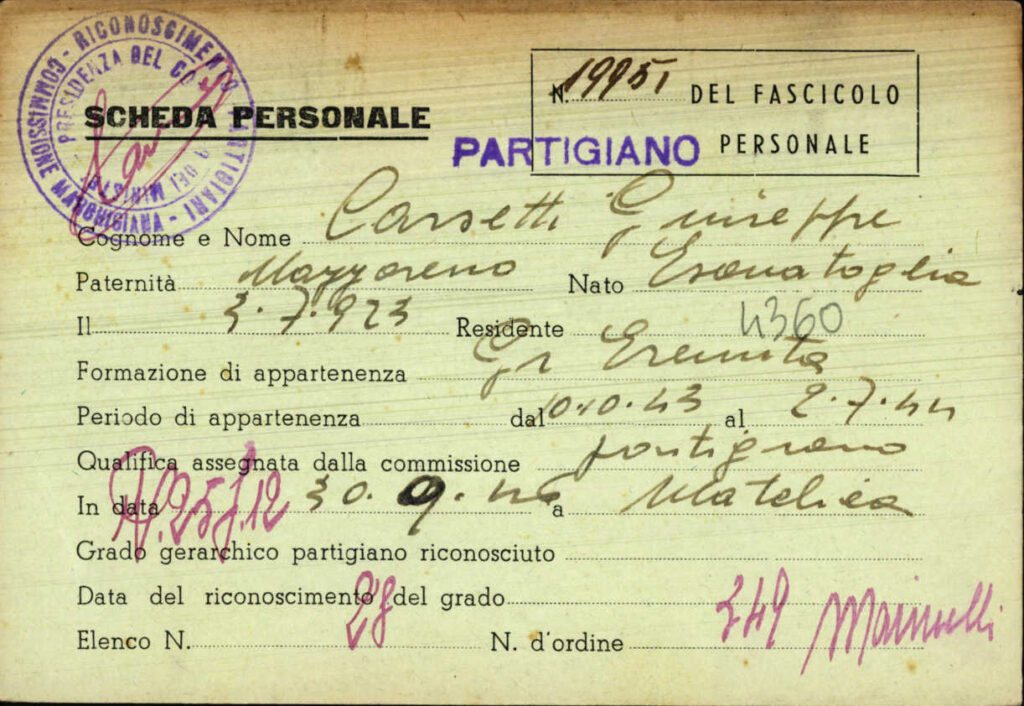 COMMISSIONE RICONOSCIMENTO PARTIGIANI MARCHIGIANA
PRESIDENZA DEL
SCHEDA PERSONALE
N. 19951 DEL FASCICOLO
PERSONALE
PARTIGIANO
Cognome e Nome Carsetti Giuseppe
Paternità Mazzareno Nato Esanatoglia
Il 3.7.923 Residente 4360
Formazione di appartenenza Gr Eremita
Periodo di appartenenza dal 10.10.43 al 2.7.44
Qualifica assegnata dalla commissione partigiano
In data 30.9.46 a Matelica
Grado gerarchico partigiano riconosciuto
Data del riconoscimento del grado
Elenco N. 28 N. d'ordine 349